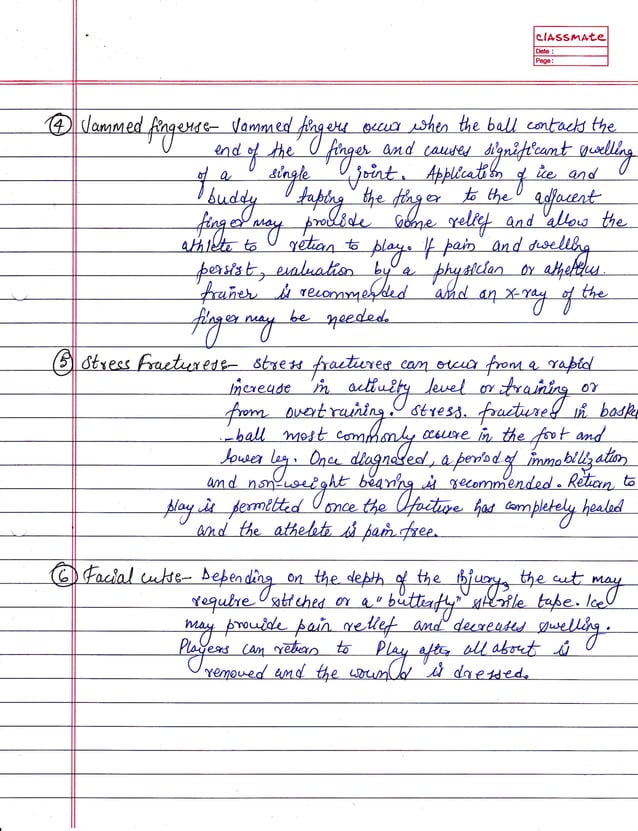 classmate
Date :
Page :
④ Jammed fingerse- Jammed fingers occur when the ball contacts the
end of the finger and causes significant swelling
of a single joint. Application of ice and
buddy taping the finger to the adjacent
finger may provide some relief and allow the
athlete to return to play. If pain and swelling
persist, evaluation by a physician or
trainer is recommended and an x-ray of the
finger may be needed.
⑤ Stress Fracturese- Stress fractures can occur from a rapid
increase in activity level or training or
from overtraining. Stress. fractures in basket
-ball most commonly occure in the foot and
lower leg. Once diagnosed, a period of immobilization
and non-weight bearing is recommended. Return to
play is permitted once the facture has completely healed
and the athelete is pain free.
⑥ Facial cutse- Depending on the depth of the injury, the cut may
require stiches or a "butterfly" sterile tape. Ice
may provide pain relief and decreases swelling.
Players can retran to Play after all about is
removed and the wound is dressed.